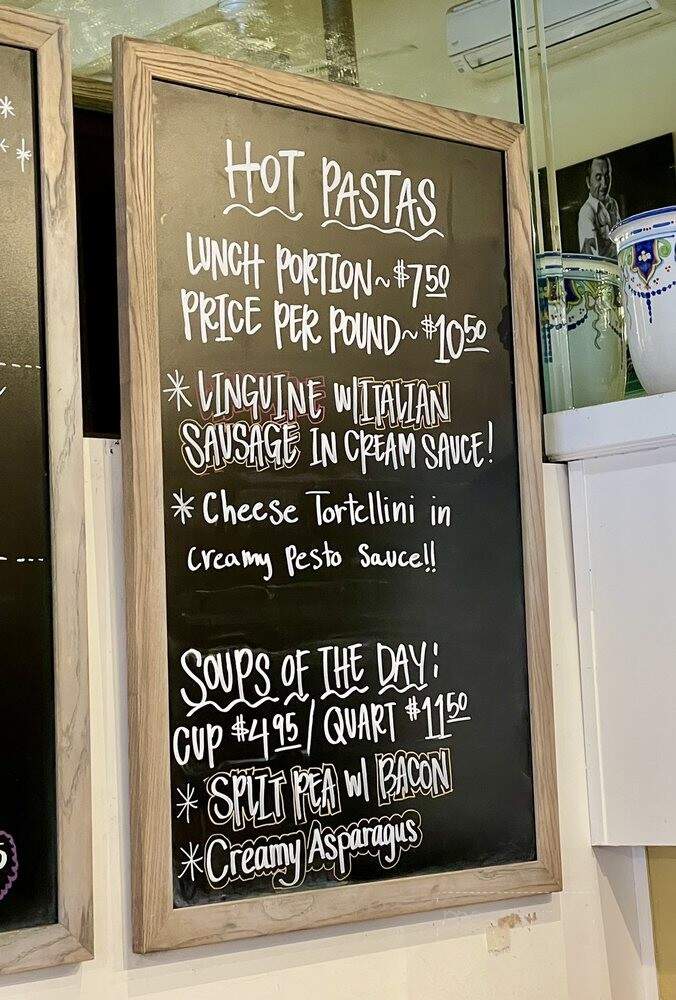 HOT PASTAS
LUNCH PORTION~$7 50
PRICE PER POUND~$10 50
* LINGUINE W/ITALIAN
SAUSAGE IN CREAM SAUCE!
* Cheese Tortellini in
Creamy Pesto Sauce!!
SOUPS OF THE DAY:
CUP $4 95/ QUART $11 50
* SPLIT PEA W/ BACON
* Creamy Asparagus